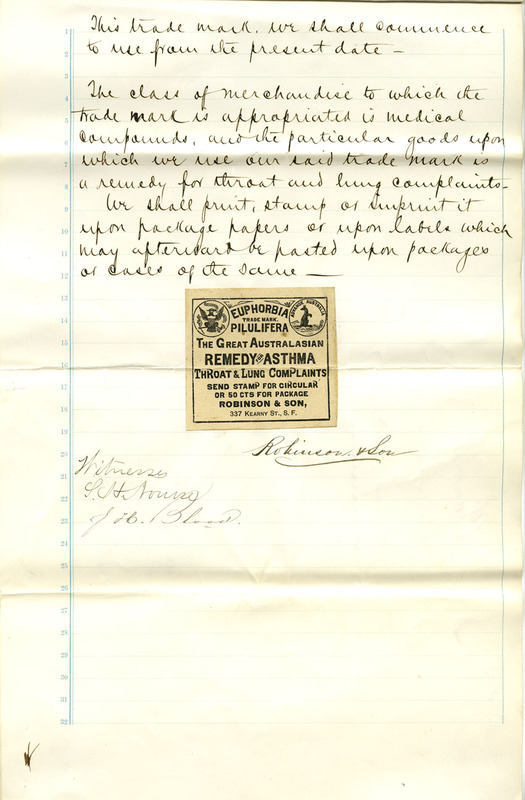 This trade mark. we shall commence
to use from the present date —
The class of merchandise to which the
trade mark is appropriated is medical
compounds, and the particular goods upon
which we use our said trade mark is
a remedy for throat and lung complaints —
We shall print, stamp or imprint it
upon package papers or upon labels which
may afterward be pasted upon packages
or cases of the same —
EUPHORBIA
TRADE MARK.
PILULIFERA
THE GREAT AUSTRALASIAN
REMEDY FOR ASTHMA
THROAT & LUNG COMPLAINTS
SEND STAMP FOR CIRCULAR
OR 50 CTS FOR PACKAGE
ROBINSON & SON,
337 KEARNY ST., S. F.
Robinson & Son
Witnesses
S. H. Nourse
J. H. Blood.
1
2
3
4
5
6
7
8
9
10
11
12
13
14
15
16
17
18
19
20
21
22
23
24
25
26
27
28
29
30
31
32